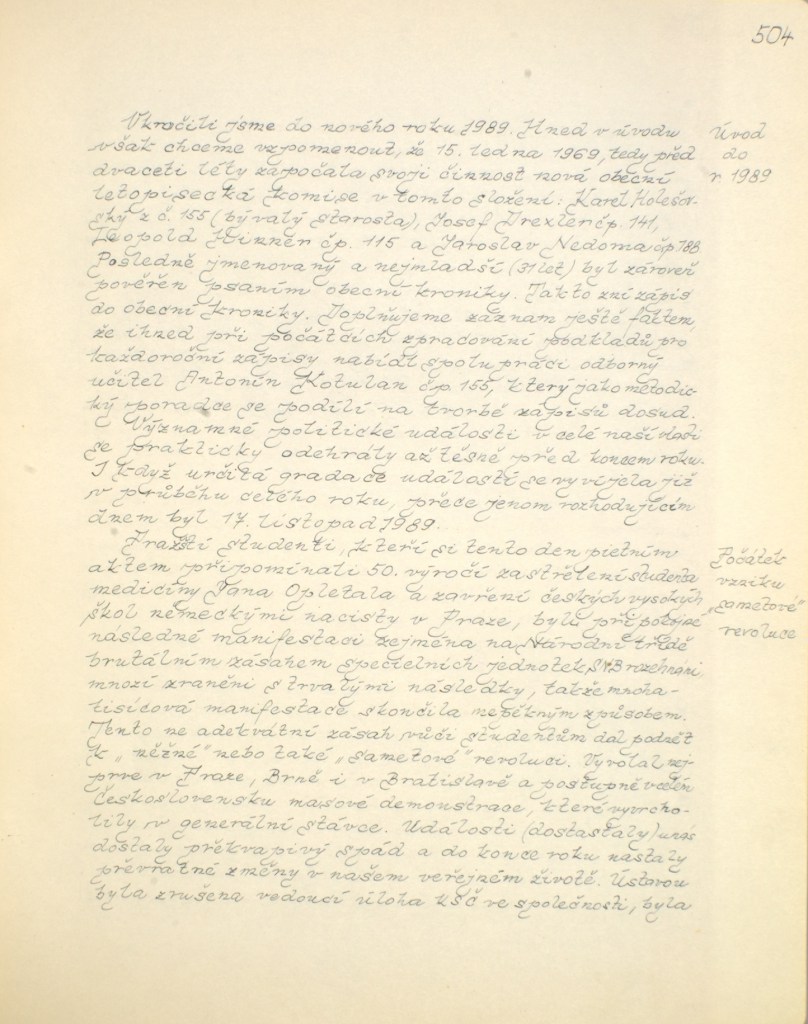 504
Vkročili jsme do nového roku 1989. Hned v úvodu
však chceme vzpomenout, že 15. ledna 1969, tedy před
dvaceti léty započala svoji činnost nová obecní
letopisecká komise v tomto složení: Karel Holešov-
ský z č. 155 (bývalý starosta), Josef Drexler čp. 141,
Leopold čp. 115 a Jaroslav Nedoma čp 188.
Posledně jmenovaný a nejmladší (31 let) byl zároveň
pověřen psaním obecní kroniky. Takto zní zápis
do obecní kroniky. Doplňujeme záznam ještě faktem,
že ihned při počátcích zpracování podkladů pro
každoroční zápisy nabídl spolupráci odborný
učitel Antonín Kotulan čp 155, který jako metodic-
ký poradce se podílí na tvorbě zápisů dosud.
Významné politické události v celé naší vlasti
se prakticky odehrály až těsně před koncem roku.
I když určitá gradace událostí se vyvíjela již
v průběhu celého roku, přece jenom rozhodujícím
dnem byl 17. listopad 1989.
Pražští studenti, kteří si tento den pietním
aktem připomínali 50. výročí zastřelení studenta
medicíny Jana Opletala a zavření českých vysokých
škol německými nacisty v Praze, byli při pokojné
následné manifestaci zejména na Národní třídě
brutálním zásahem specielních jednotek SNB rozehnáni,
mnozí zraněni s trvalými následky, takže mnoha-
tisícová manifestace skončila nepěkným způsobem.
Tento ne adekvátní zásah vůči studentům dal podnět
k „něžné" nebo také „sametové" revoluci. Vyvolal nej-
prve v Praze, Brně i v Bratislavě a postupně v celém
Československu masové demonstrace, které vyvrcho-
lily v generální stávce. Události (dostastaly) u nás
dostaly překvapivý spád a do konce roku nastaly
převratné změny v našem veřejném životě. Ústavou
byla zrušena vedoucí úloha KSČ ve společnosti, byla
Úvod
do
r 1989
Počátek
vzniku
„sametové"
revoluce